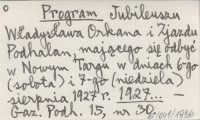 Program Jubileuszu
Władysława Orkana i Zjazdu
Podhalan, mającego się odbyć
w Nowym Targu w dniach 6-go
(sobota) i 7-go (niedziela)
sierpnia 1927 r. 1927. —
Gaz. Podh. 15, nr 30.